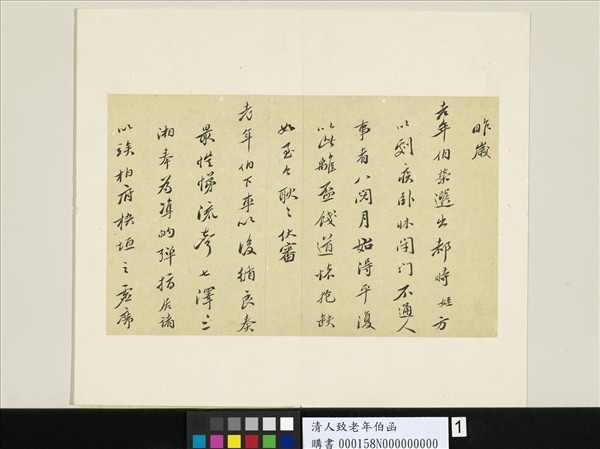 昨歲
老年伯榮遷出都時姪方
以劇疾卧牀閉门不通人
事者八閱月始得平復
以此離筵餞道悵抱缺
如至今耿〻伏審
老年伯下車以後循良奏
最愷悌流聲七澤三
湘奉為準的彈指居諸
以竢柏府棘垣之虛席
清人致老年伯函
購書 000158N000000000
1